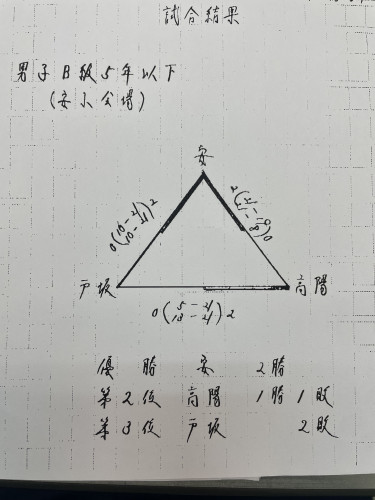 試合結果
男子B級5年以下
(安小会場)
安
0(10-21 10-21)2
2(21- 21-)0
戸坂
高陽
0(5-21 18-21)2
優勝 安 2勝
第2位 高陽 1勝1敗
第3位 戸坂 2敗